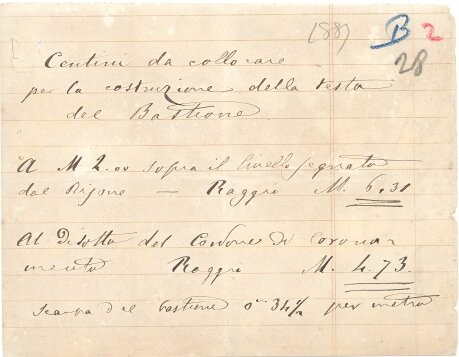 (88)
B 2
28
Centini da collocare
per la costruzione della testa
del Bastione
A M 2.00 sopra il livello segnato
dal Rigone — Raggio M. 6.31
Al disotto del Cordone di corona-
mento Raggio M. 4.73
scarpa del bastione 0 34½ per metro